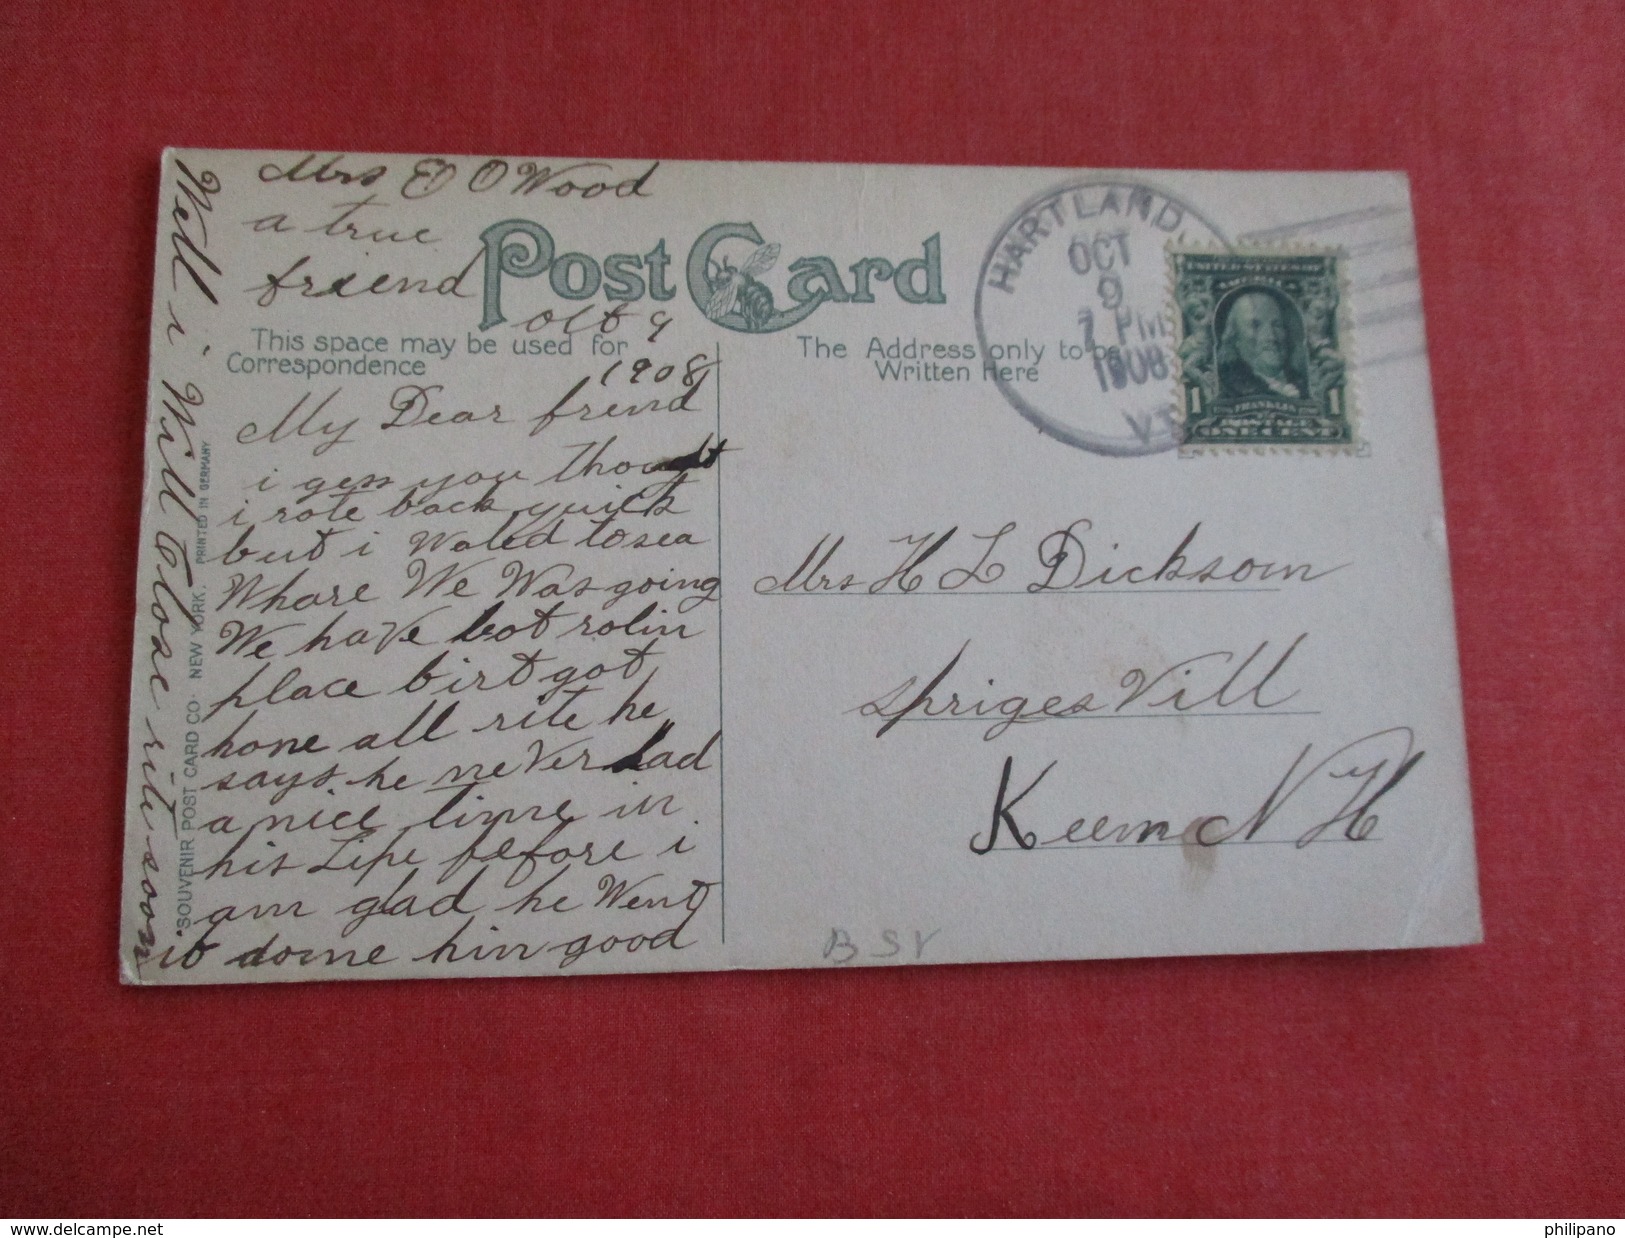 Mrs E O Wood
a true
friend
Post Card
Oct 9
1908
This space may be used for
Correspondence
The Address only to be
Written Here
HARTLAND,
OCT
9
7 PM
1908
VT
UNITED STATES OF
AMERICA
1 FRANKLIN 1
POSTAGE
ONE CENT
My Dear friend
i gess you thought
i rote back quick
but i wated to sea
Whare We Was going
We have
place birt got
home all rite he
says he never had
a nice time in
his Life before i
am glad he Went
it dome him good
Well i Will Close rite soon
SOUVENIR POST CARD CO. NEW YORK. PRINTED IN GERMANY
Mrs H L Dickson
Spriges Vill
Keen N H
B S V
www.delcampe.net
philipano